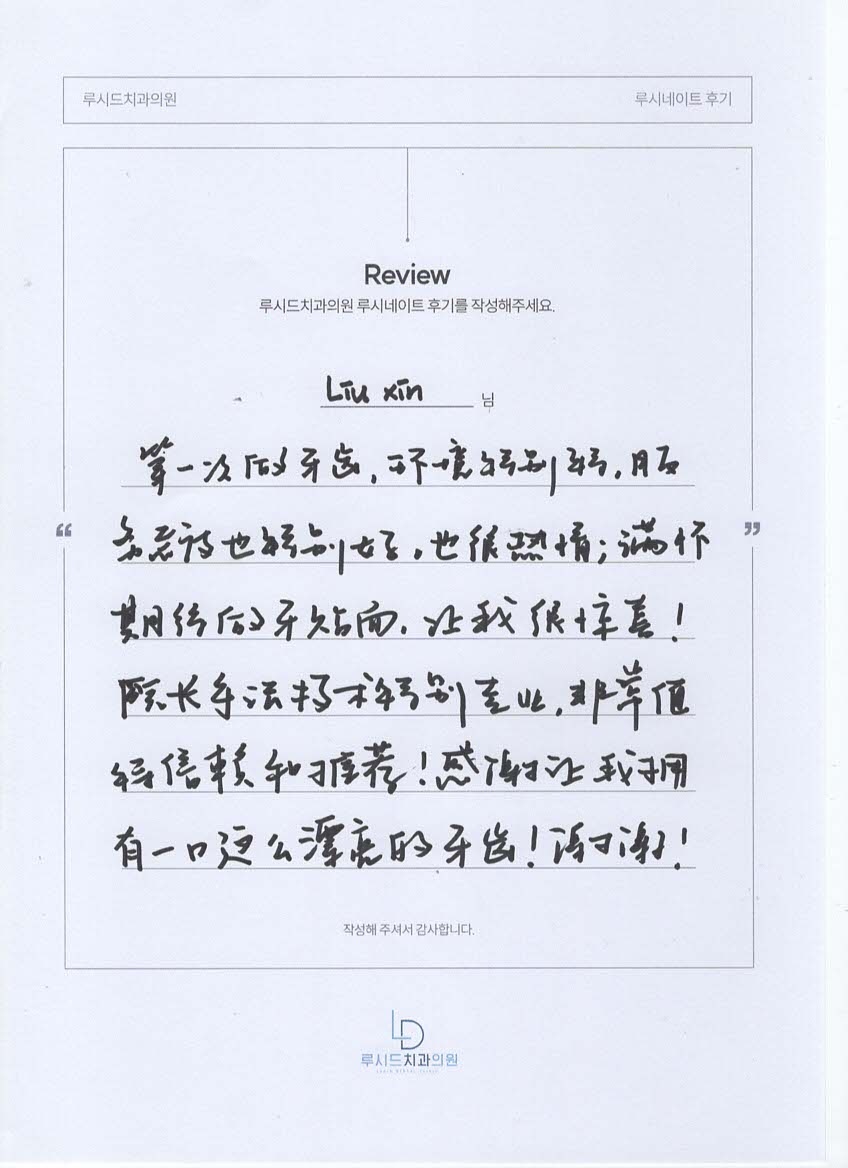 루시드치과의원
루시네이트 후기
Review
루시드치과의원 루시네이트 후기를 작성해주세요.
Liu xin 님
第一次做牙齿,环境特别好,服
务态度也特别好,也很热情;满怀
期待做牙贴面,让我很惊喜!
院长手法技术特别专业,非常值
得信赖和推荐!感谢让我拥
有一口这么漂亮的牙齿!谢谢!
작성해 주셔서 감사합니다.
루시드치과의원